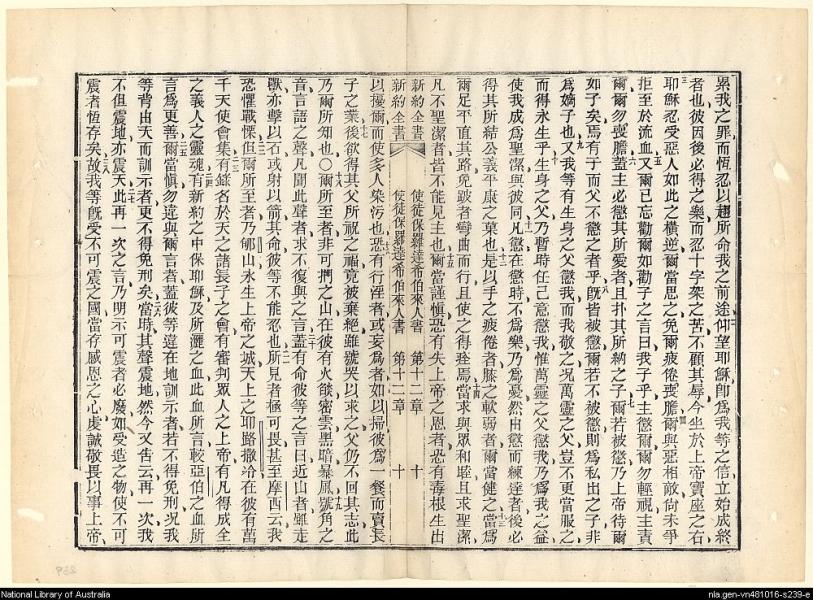 累我之罪而恆忍以趨所命我之前途仰望耶穌卽爲我等之信立始成終
者也彼因後必得之樂而忍十字架之苦不顧其辱今坐於上帝寶座之右
耶穌忍受惡人如此之橫逆爾當思之免爾疲倦喪膽爾與惡相敵尙未爭
拒至於流血又爾已忘勸爾如勸子之言曰我子乎主懲爾爾勿輕視主責
爾爾勿喪膽蓋主必懲其所愛者且扑其所納之子爾若被懲乃上帝待爾
如子矣焉有子而父不懲之者乎旣皆被懲爾若不被懲則爲私出之子非
爲嫡子也又我等有生身之父懲我而我敬之况萬靈之父豈不更當服之
而得永生乎生身之父乃暫時任己意懲我惟萬靈之父懲我乃爲我之益
使我成爲聖潔與彼同凡懲在懲時不爲樂乃爲憂然由懲而練達者後必
得其所結公義平康之菓也是以手之疲倦者膝之軟弱者爾當健之當爲
爾足平直其路免跛者彎曲而行且使之得痊焉當求與眾和睦且求聖潔
凡不聖潔者皆不能見主也爾當謹愼恐有失上帝之恩者恐有毒根生出
新約全書 使徒保羅達希伯來人書 第十二章 十
新約全書 使徒保羅達希伯來人書 第十二章 十
以擾爾而使多人染污也恐有行淫者或妄爲者如以掃彼爲一餐而賣長
子之業後欲得其父所祝之福竟被棄絕雖號哭以求之父仍不回其志此
乃爾所知也○爾所至者非可捫之山在彼有火燄密雲黑暗暴風號角之
音言語之聲凡聞此聲者求不復與之言蓋有命彼等之言曰近山者雖走
獸亦擊以石或射以箭其命彼等不能忍也所見者極可畏甚至摩西云我
恐懼戰慄但爾所至者乃郇山永生上帝之城天上之耶路撒冷在彼有萬
千天使會集有錄名於天之諸長子之會有審判眾人之上帝有凡得成全
之義人之靈魂有新約之中保耶穌及所灑之血此血所言較亞伯之血所
言爲更善爾當愼勿違與爾言者蓋彼等違在地訓示者若不得免刑况我
等背由天而訓示者更不得免刑矣當時其聲震地然今又吿云再一次我
不但震地亦震天此再一次之言乃明示可震者必廢如受造之物使不可
震者恆存矣故我等旣受不可震之國當存感恩之心虔誠敬畏以事上帝
National Library of Australia
nla.gen-vn481016-s239-e